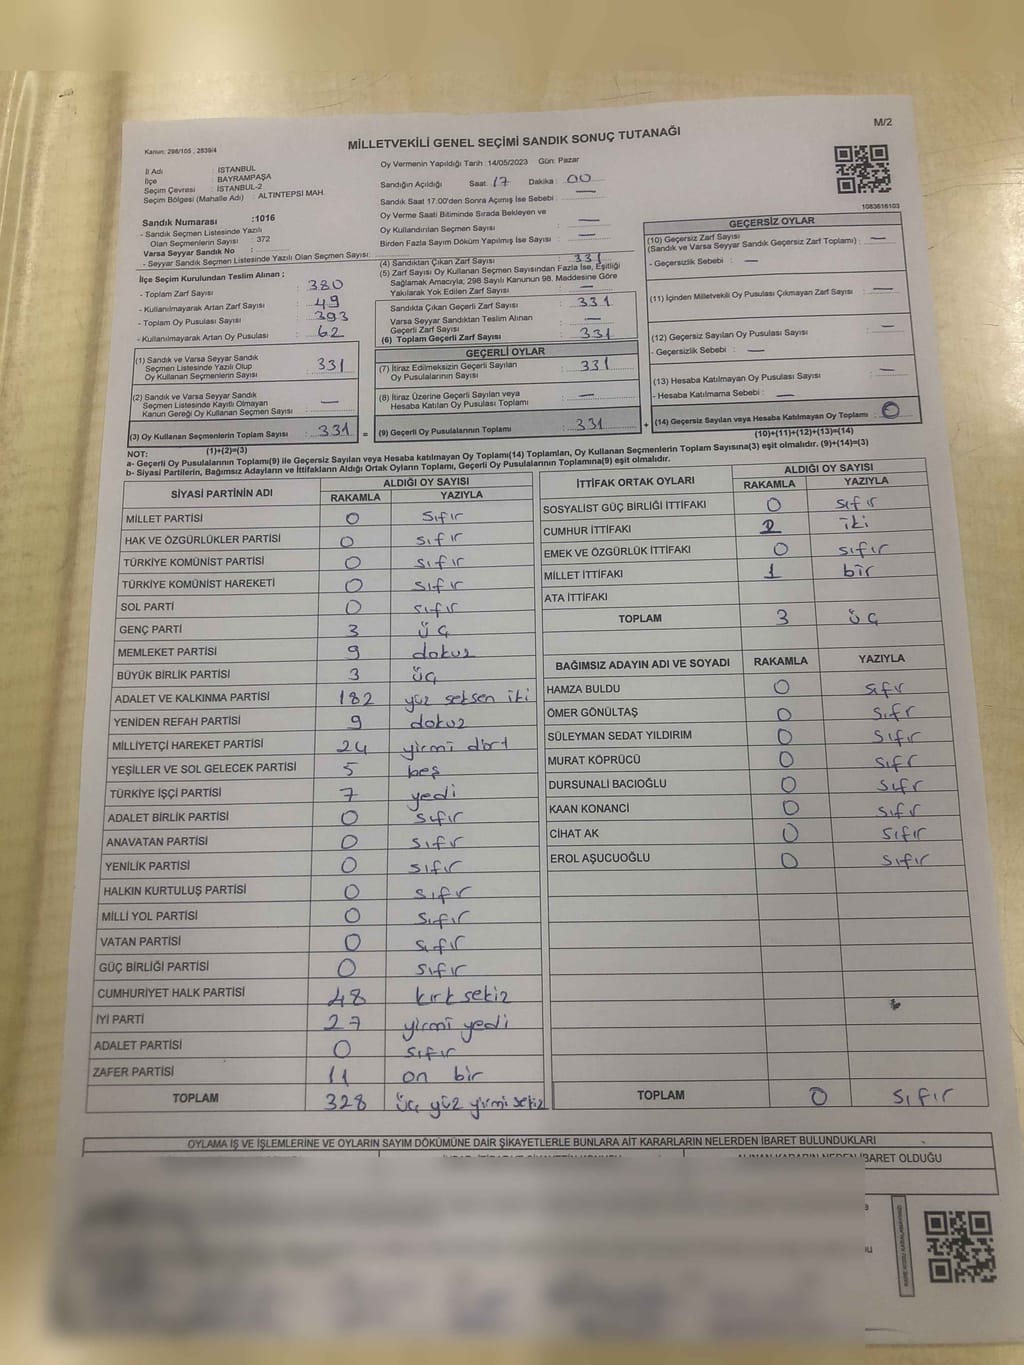 M/2
MİLLETVEKİLİ GENEL SEÇİMİ SANDIK SONUÇ TUTANAĞI
Kanun: 298/105 , 2839/4
İl Adı : İSTANBUL
İlçe : BAYRAMPAŞA
Seçim Çevresi : İSTANBUL-2
Seçim Bölgesi (Mahalle Adı) : ALTINTEPSİ MAH.
Sandık Numarası :1016
- Sandık Seçmen Listesinde Yazılı
Olan Seçmenlerin Sayısı : 372
Varsa Seyyar Sandık No :
- Seyyar Sandık Seçmen Listesinde Yazılı Olan Seçmen Sayısı:
Oy Vermenin Yapıldığı Tarih :14/05/2023 Gün: Pazar
Sandığın Açıldığı Saat: 17 Dakika : 00
Sandık Saat 17.00'den Sonra Açımış İse Sebebi : —
Oy Verme Saati Bitiminde Sırada Bekleyen ve
Oy Kullandırılan Seçmen Sayısı —
Birden Fazla Sayım Döküm Yapılmış İse Sayısı : —
1083616103
İlçe Seçim Kurulundan Teslim Alınan ;
- Toplam Zarf Sayısı : 380
- Kullanılmayarak Artan Zarf Sayısı : 49
- Toplam Oy Pusulası Sayısı : 393
- Kullanılmayarak Artan Oy Pusulası : 62
(1) Sandık ve Varsa Seyyar Sandık
Seçmen Listesinde Yazılı Olup
Oy Kullanan Seçmenlerin Sayısı : 331
(2) Sandık ve Varsa Seyyar Sandık
Seçmen Listesinde Kayıtlı Olmayan
Kanun Gereği Oy Kullanan Seçmen Sayısı : —
(3) Oy Kullanan Seçmenlerin Toplam Sayısı : 331
(1)+(2)=(3)
(4) Sandıktan Çıkan Zarf Sayısı : 331
(5) Zarf Sayısı Oy Kullanan Seçmen Sayısından Fazla İse, Eşitliği
Sağlamak Amacıyla; 298 Sayılı Kanunun 98. Maddesine Göre
Yakılarak Yok Edilen Zarf Sayısı : —
Sandıkta Çıkan Geçerli Zarf Sayısı : 331
Varsa Seyyar Sandıktan Teslim Alınan
Geçerli Zarf Sayısı : —
(6) Toplam Geçerli Zarf Sayısı : 331
GEÇERLİ OYLAR
(7) İtiraz Edilmeksizin Geçerli Sayılan
Oy Pusulalarının Sayısı : 331
(8) İtiraz Üzerine Geçerli Sayılan veya
Hesaba Katılan Oy Pusulası Toplamı : —
= (9) Geçerli Oy Pusulalarının Toplamı : 331
GEÇERSİZ OYLAR
(10) Geçersiz Zarf Sayısı
(Sandık ve Varsa Seyyar Sandık Geçersiz Zarf Toplamı) : —
- Geçersizlik Sebebi : —
(11) İçinden Milletvekili Oy Pusulası Çıkmayan Zarf Sayısı : —
(12) Geçersiz Sayılan Oy Pusulası Sayısı : —
- Geçersizlik Sebebi : —
(13) Hesaba Katılmayan Oy Pusulası Sayısı : —
- Hesaba Katılmama Sebebi : —
+ (14) Geçersiz Sayılan veya Hesaba Katılmayan Oy Toplamı : 0
(10)+(11)+(12)+(13)=(14)
NOT:
a- Geçerli Oy Pusulalarının Toplamı(9) ile Geçersiz Sayılan veya Hesaba katılmayan Oy Toplamı(14) Toplamları, Oy Kullanan Seçmenlerin Toplam Sayısına(3) eşit olmalıdır. (9)+(14)=(3)
b- Siyasi Partilerin, Bağımsız Adayların ve İttifakların Aldığı Ortak Oyların Toplamı, Geçerli Oy Pusulalarının Toplamına(9) eşit olmalıdır.
SİYASİ PARTİNİN ADI ALDIĞI OY SAYISI
RAKAMLA YAZIYLA
MİLLET PARTİSİ 0 sıfır
HAK VE ÖZGÜRLÜKLER PARTİSİ 0 sıfır
TÜRKİYE KOMÜNİST PARTİSİ 0 sıfır
TÜRKİYE KOMÜNİST HAREKETİ 0 sıfır
SOL PARTİ 0 sıfır
GENÇ PARTİ 3 üç
MEMLEKET PARTİSİ 9 dokuz
BÜYÜK BİRLİK PARTİSİ 3 üç
ADALET VE KALKINMA PARTİSİ 182 yüz seksen iki
YENİDEN REFAH PARTİSİ 9 dokuz
MİLLİYETÇİ HAREKET PARTİSİ 24 yirmi dört
YEŞİLLER VE SOL GELECEK PARTİSİ 5 beş
TÜRKİYE İŞÇİ PARTİSİ 7 yedi
ADALET BİRLİK PARTİSİ 0 sıfır
ANAVATAN PARTİSİ 0 sıfır
YENİLİK PARTİSİ 0 sıfır
HALKIN KURTULUŞ PARTİSİ 0 sıfır
MİLLİ YOL PARTİSİ 0 sıfır
VATAN PARTİSİ 0 sıfır
GÜÇ BİRLİĞİ PARTİSİ 0 sıfır
CUMHURİYET HALK PARTİSİ 48 kırk sekiz
İYİ PARTİ 27 yirmi yedi
ADALET PARTİSİ 0 sıfır
ZAFER PARTİSİ 11 on bir
TOPLAM 328 üç yüz yirmi sekiz
İTTİFAK ORTAK OYLARI ALDIĞI OY SAYISI
RAKAMLA YAZIYLA
SOSYALİST GÜÇ BİRLİĞİ İTTİFAKI 0 sıfır
CUMHUR İTTİFAKI 2 iki
EMEK VE ÖZGÜRLÜK İTTİFAKI 0 sıfır
MİLLET İTTİFAKI 1 bir
ATA İTTİFAKI
TOPLAM 3 üç
BAĞIMSIZ ADAYIN ADI VE SOYADI RAKAMLA YAZIYLA
HAMZA BULDU 0 sıfır
ÖMER GÖNÜLTAŞ 0 sıfır
SÜLEYMAN SEDAT YILDIRIM 0 sıfır
MURAT KÖPRÜCÜ 0 sıfır
DURSUNALİ BACIOĞLU 0 sıfır
KAAN KONANCİ 0 sıfır
CİHAT AK 0 sıfır
EROL AŞUCUOĞLU 0 sıfır
TOPLAM 0 sıfır
OYLAMA İŞ VE İŞLEMLERİNE VE OYLARIN SAYIM DÖKÜMÜNE DAİR ŞİKAYETLERLE BUNLARA AİT KARARLARIN NELERDEN İBARET BULUNDUKLARI
İBARET OLDUĞU